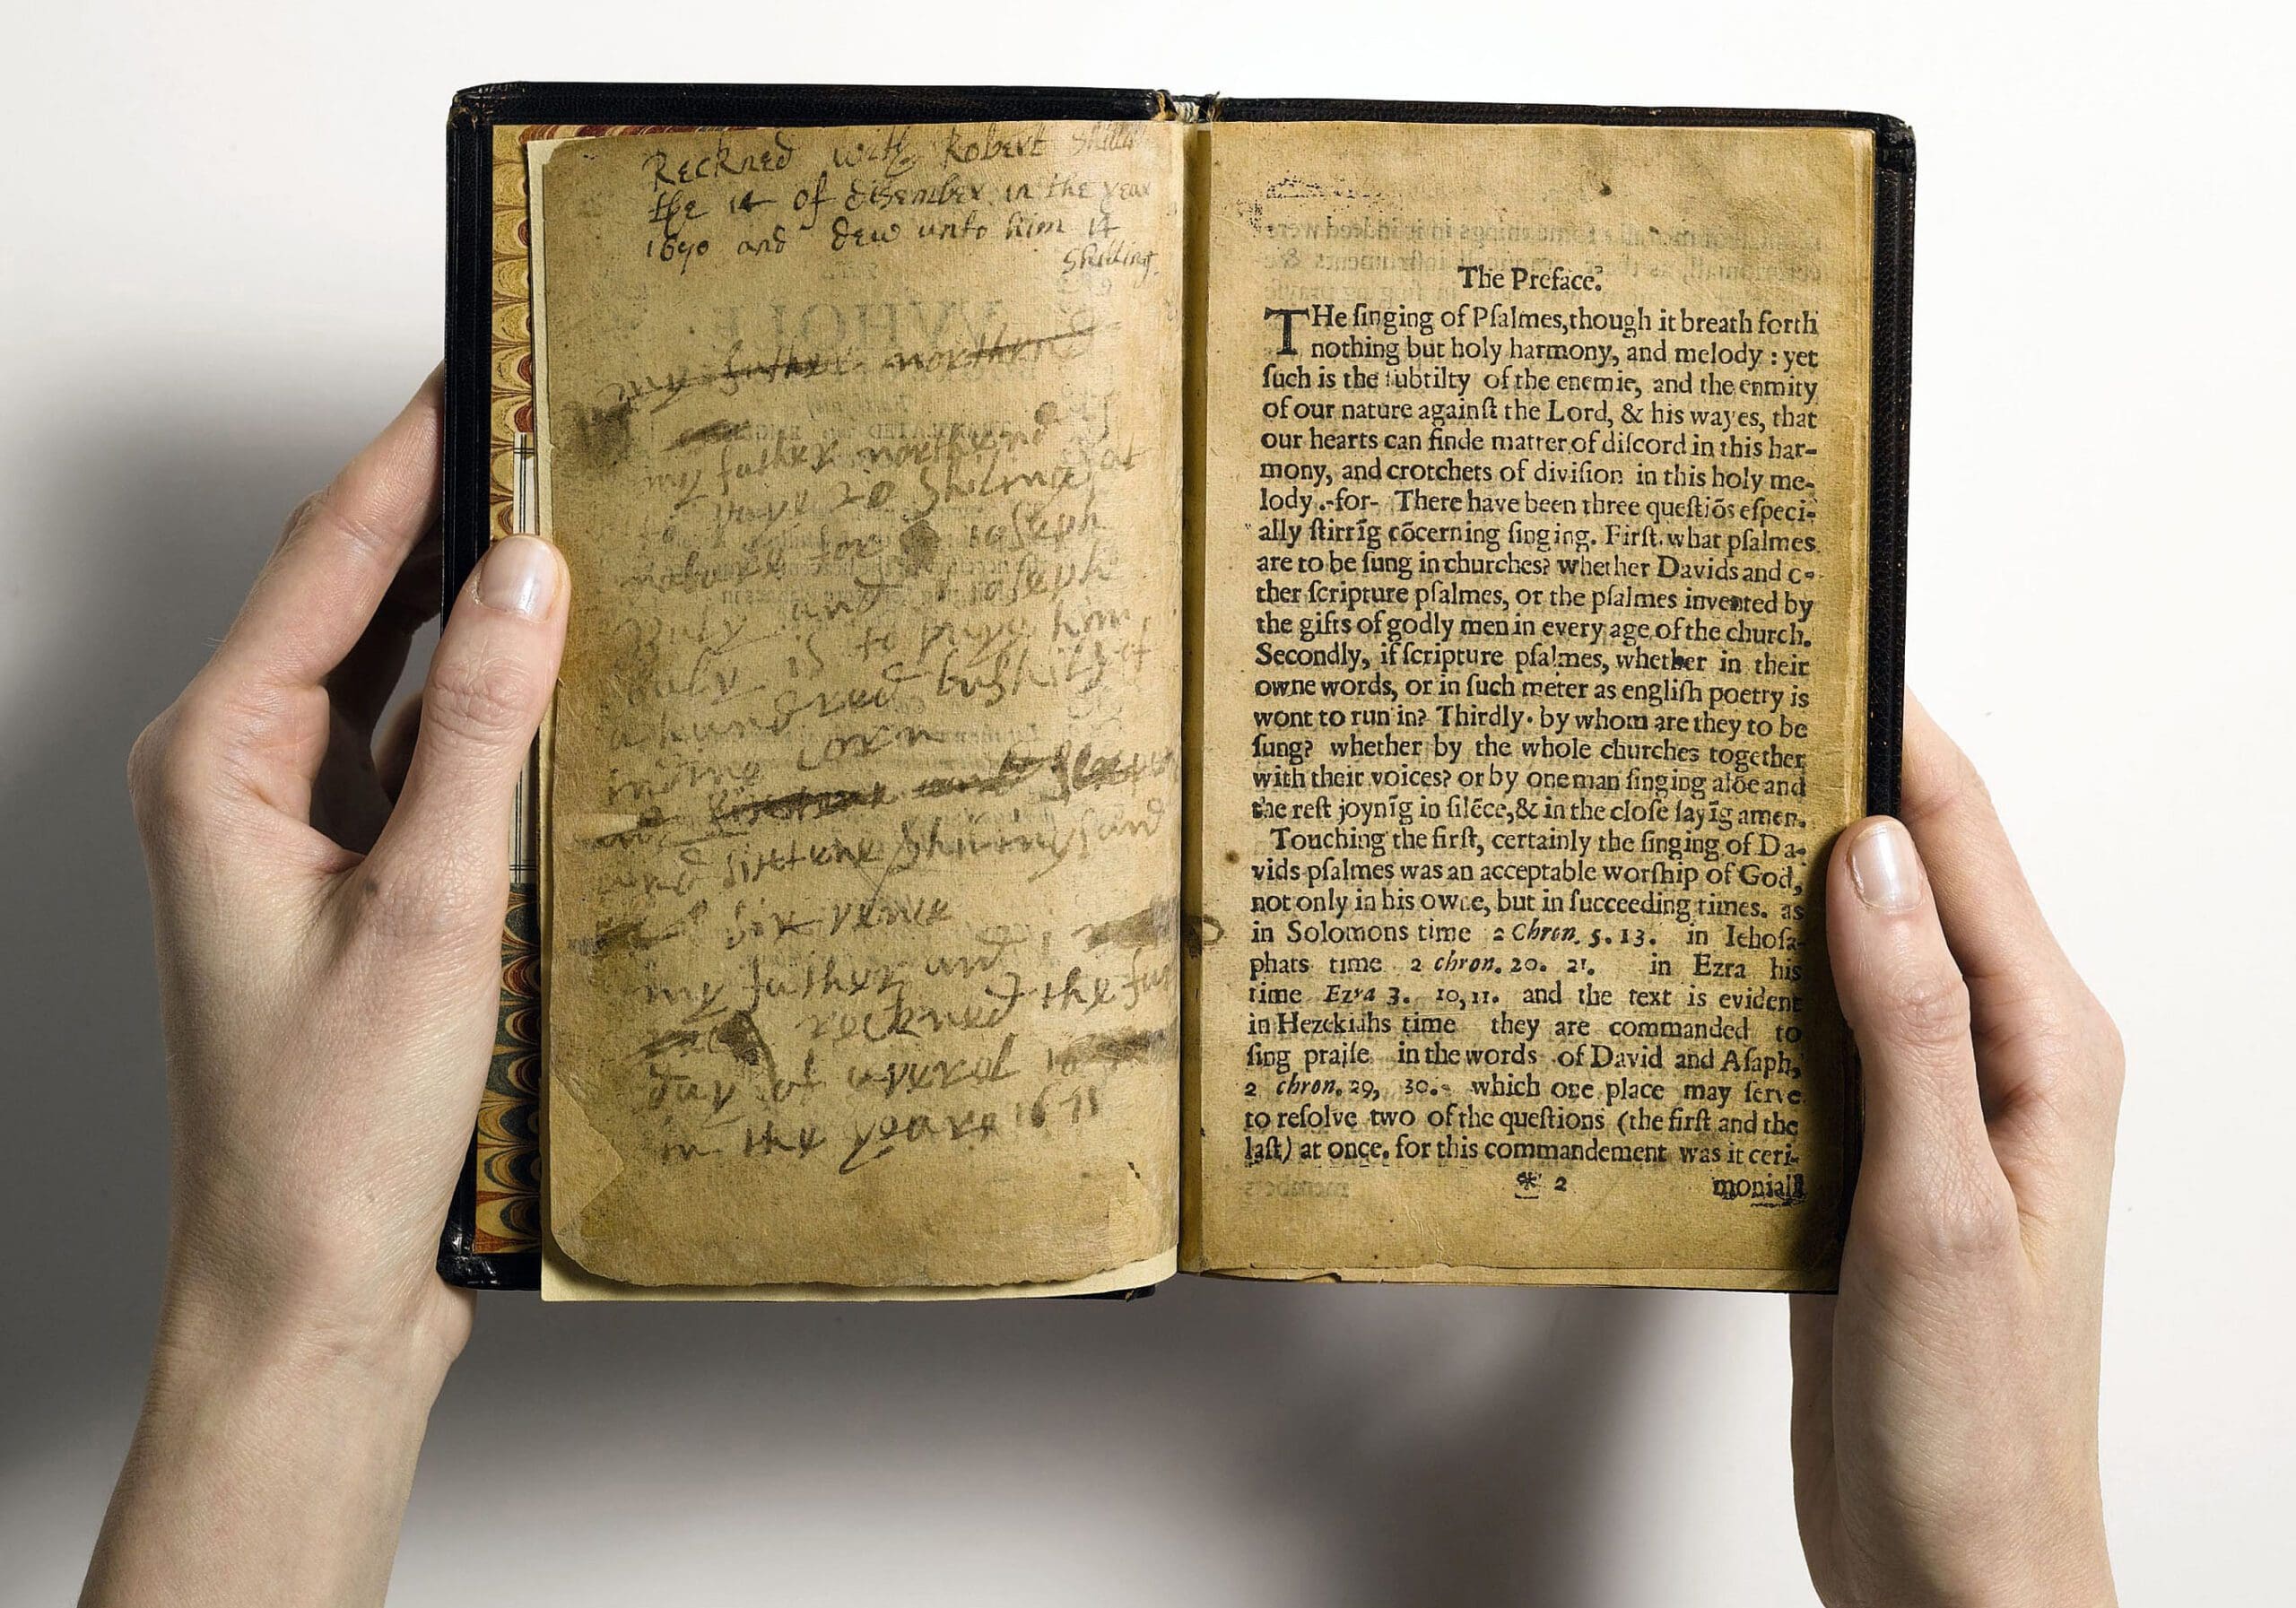 Reckned with Robert
the 14 of disember in the year
1690 and dew unto him 14
shilling
my father northend
my father northend
to paye 20 shilings at
for Joseph
and Joseph
is to paye him
a hundred bushils of
indine corn
and sixtene shilings and
six penc
my father and I
reckned the
day of aperel
in the yeare 1671
WHOLE
The Preface.
THe ſinging of Pſalmes, though it breath forth
nothing but holy harmony, and melody : yet
ſuch is the ſubtilty of the enemie, and the enmity
of our nature againſt the Lord, & his wayes, that
our hearts can finde matter of diſcord in this har-
mony, and crotchets of diviſion in this holy me-
lody .-for- There have been three queſtiõs eſpeci-
ally ſtirrĩg cõcerning ſinging. Firſt. what pſalmes
are to be ſung in churches? whether Davids and o-
ther ſcripture pſalmes, or the pſalmes invented by
the gifts of godly men in every age of the church.
Secondly, if ſcripture pſalmes, whether in their
owne words, or in ſuch meter as engliſh poetry is
wont to run in? Thirdly. by whom are they to be
ſung? whether by the whole churches together
with their voices? or by one man ſinging alõe and
the reſt joynĩg in ſilẽce, & in the cloſe ſayĩg amen.
Touching the firſt, certainly the ſinging of Da-
vids pſalmes was an acceptable worſhip of God,
not only in his owne, but in ſucceeding times. as
in Solomons time 2 Chron. 5. 13. in Iehoſa-
phats time 2 chron. 20. 21. in Ezra his
time Ezra 3. 10, 11. and the text is evident
in Hezekiahs time they are commanded to
ſing praiſe in the words of David and Aſaph,
2 chron. 29, 30. which one place may ſerve
to reſolve two of the queſtions (the firſt and the
laſt) at once. for this commandement was it ceri-
* 2 moniall